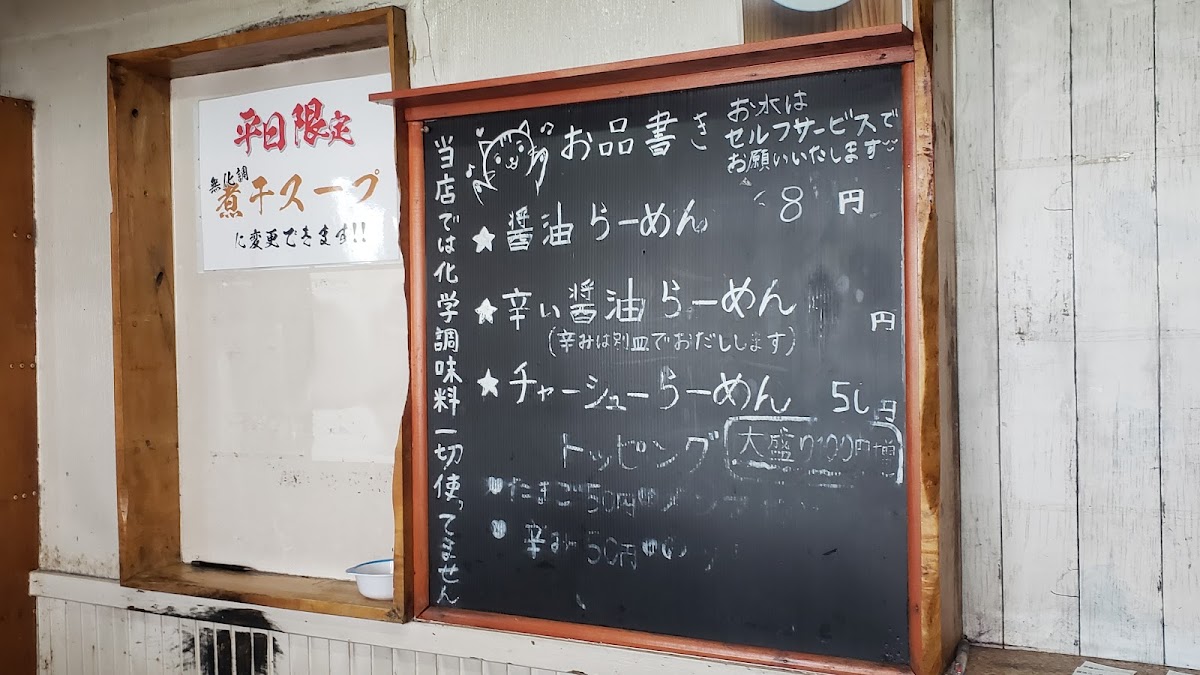 平日限定
無化調
煮干スープ
に変更できます!!
当店では化学調味料一切使ってません
お品書き
お水は
セルフサービスで
お願いいたします
★醤油らーめん 8 円
★辛い醤油らーめん 円
(辛みは別皿でおだしします)
★チャーシューらーめん 5 円
トッピング
大盛り100円増
たまご50円
辛み50円